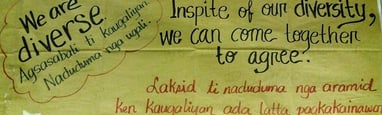 We are
diverse.
Agsasabali ti kaugaliyan.
Naduduma nga ugali.
Inspite of our diversity,
we can come together
to agree!
Laksid ti naduduma nga aramid
ken kaugaliyan ada latta pagkakainawan